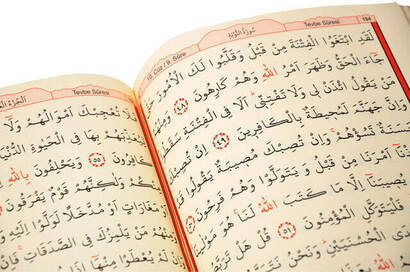 10. Cüz / 9. Sûre
سُورَةُ التَّوْبَةِ
Tevbe Sûresi
194
لَقَدِ ابْتَغَوُا الْفِتْنَةَ مِنْ قَبْلُ وَقَلَّبُوا لَكَ الْاُمُورَ
جَٓاءَ الْحَقُّ وَظَهَرَ اَمْرُ اللّٰهِ وَهُمْ كَارِهُونَ ﴿٤٨﴾
مَنْ يَقُولُ ائْذَنْ لِي وَلَا تَفْتِنِّي اَلَا فِي الْفِتْنَةِ سَقَطُوا
وَاِنَّ جَهَنَّمَ لَمُحِيطَةٌ بِالْكَافِرِينَ ﴿٤٩﴾ اِنْ تُصِبْكَ
حَسَنَةٌ تَسُؤْهُمْ وَاِنْ تُصِبْكَ مُصِيبَةٌ يَقُولُوا
اَخَذْنَا اَمْرَنَا مِنْ قَبْلُ وَيَتَوَلَّوْا وَهُمْ فَرِحُونَ
يُصِيبَنَا اِلَّا مَا كَتَبَ اللّٰهُ لَنَا هُوَ
فَلْيَتَوَكَّلِ الْمُؤْمِنُونَ ﴿٥١﴾ قُلْ هَلْ
الْحُسْنَيَيْنِ وَنَحْنُ
Tevbe Sûresi
تُعْجِبْكَ اَمْوَالُهُمْ وَلَا
بِهَا فِي الْحَيٰوةِ الدُّنْيَا
كَافِرُونَ ﴿٥٥﴾ وَيَحْلِفُونَ بِاللّٰهِ
وَلٰكِنَّهُمْ قَوْمٌ يَفْرَقُونَ
اَوْ مَغَارَاتٍ اَوْ مُدَّخَلًا لَوَلَّوْا
مَنْ يَلْمِزُكَ فِي الصَّدَقَاتِ
يُعْطَوْا مِنْهَا اِذَا